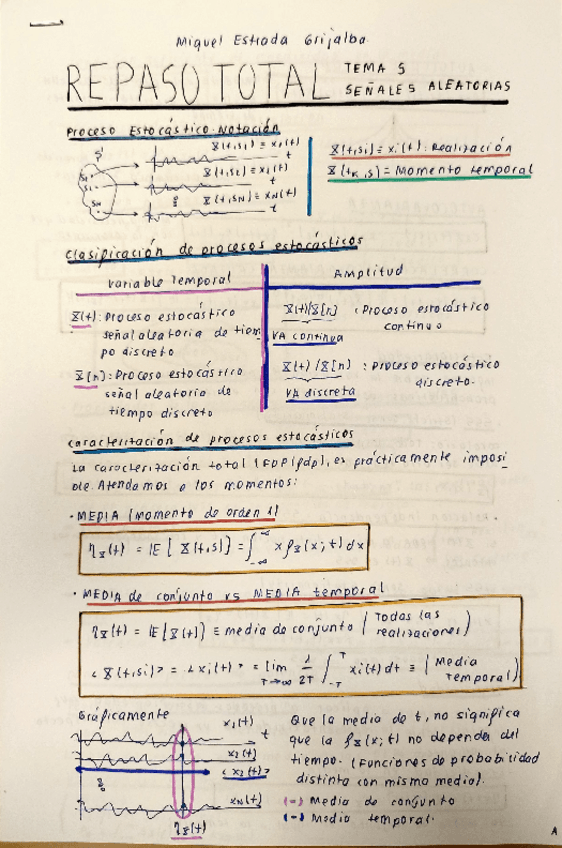 Miquel Estrada Grijalba
REPASO TOTAL TEMA 5
SEÑALES ALEATORIAS
Proceso Estocástico. Notación
S
X(t,s₁) ≡ x₁(t)
t
X(t,s₁) ≡ x₁(t)
t
X(t,sN) ≡ xN(t)
sN
X(t,si) ≡ xi(t): Realización
X(tk,s) = Momento temporal
Clasificación de procesos estocásticos
Variable Temporal
X(t): Proceso estocástico
señal aleatoria de tiem
po discreto
X[n]: Proceso estocástico
señal aleatoria de
tiempo discreto
Amplitud
X(t)/X[n] : Proceso estocástico
continuo
VA continua
X(t)/X[n] : Proceso estocástico
discreto.
VA discreta
Caracterización de procesos estocásticos
La caracterización total (FDP/fdp), es prácticamente imposi
ble. Atendamos a los momentos:
· MEDIA (momento de orden 1)
ηX(t) = IE[X(t,s)] = ∫ x fX(x;t) dx
· MEDIA de conjunto vs MEDIA temporal
ηX(t) = IE[X(t)] ≡ media de conjunto (Todas las
realizaciones)
<X(t,si)> = <xi(t)> = lim T→∞ 1/2T ∫-T^T xi(t) dt ≡ (Media
temporal)
Gráficamente
x₁(t)
t
x₂(t)
<x₂(t)>
xN(t)
ηX(t)
Que la media de t, no significa
que la fX(x;t) no dependa del
tiempo. (Funciones de probabilidad
distinta con misma media).
(-) Media de conjunto
(-) Media temporal.
A